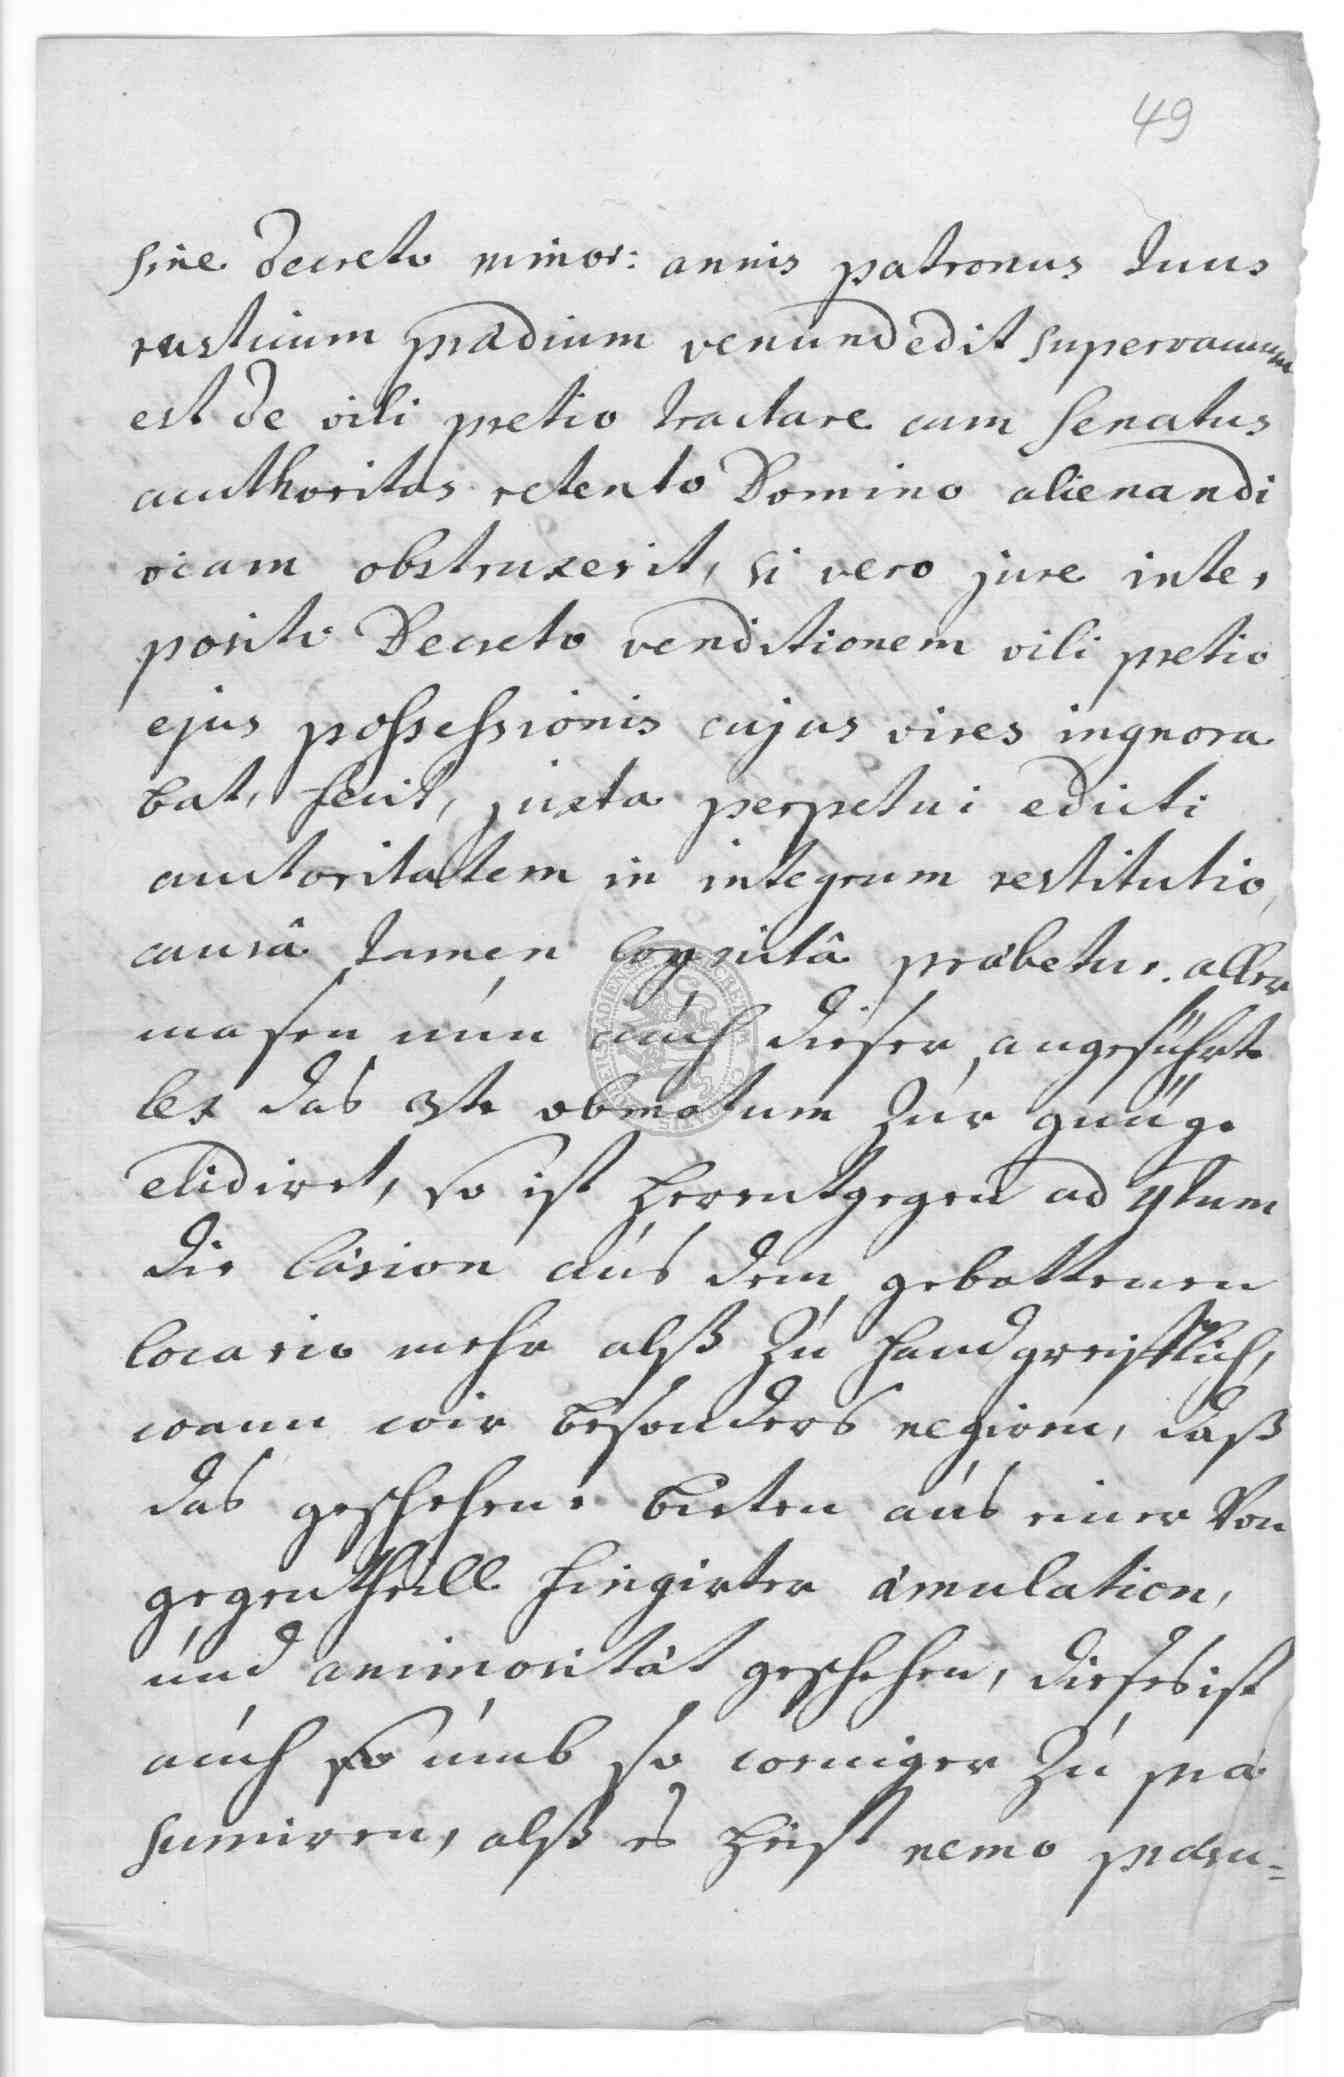 49
sine decreto minor: annis patronus tuus
rusticum prædium venundedit supervacuum
est de vili pretio tractare cum Senatus
authoritas retento Domino alienandi
viam obstruxerit, si vero jure inter,
posito Decreto venditionem vili pretio
ejus possessionis cujus vires ingnora
bat, fecit, juxta perpetui edicti
auctoritatem in integrum restitutio,
causâ tamen cognitâ præbetur. aller
masen nun auch dieser angeführte
lex das 3te obmotum zur gnüge
elidiret, so ist herentgegen ad 4tum
die läsion aus dem gebottenen
locario mehr alß zu handgreifflich,
wann wir besonders negiren, daß
das geschehene bieten aus einer von
gegentheill fingirter æmulation,
und animosität geschehen, dieses ist
auch so umb so weniger zu præ
sumiren, alß es heist nemo præsu=